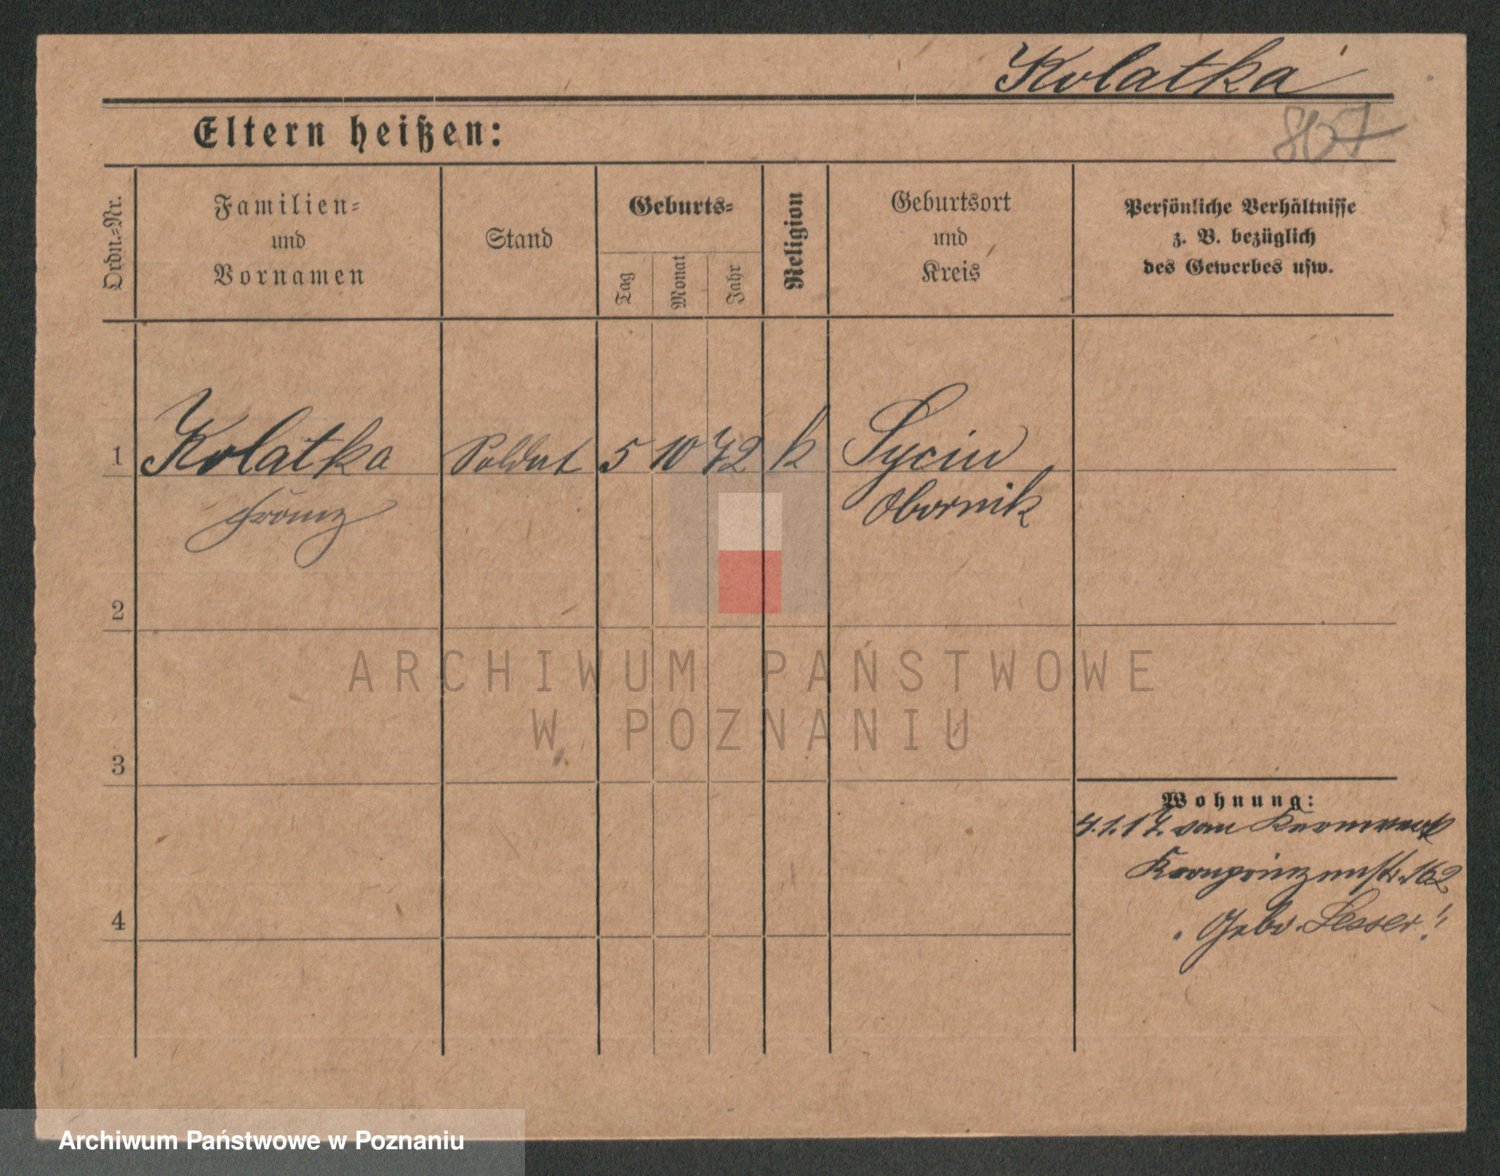 Kolatka
867
Eltern heißen:
Ordn.-Nr.
Familien-
und
Vornamen
Stand
Geburts-
Tag
Monat
Jahr
Religion
Geburtsort
und
Kreis
Persönliche Verhältnisse
z. B. bezüglich
des Gewerbes usw.
1 Kolatka Soldat 5 10 72 k Sycin
Franz Obornik
2
ARCHIWUM PAŃSTWOWE
W POZNANIU
3
Wohnung:
4.1.17. vom
Kronprinzenstr. 162
Gebr. Lesser
4
Archiwum Państwowe w Poznaniu